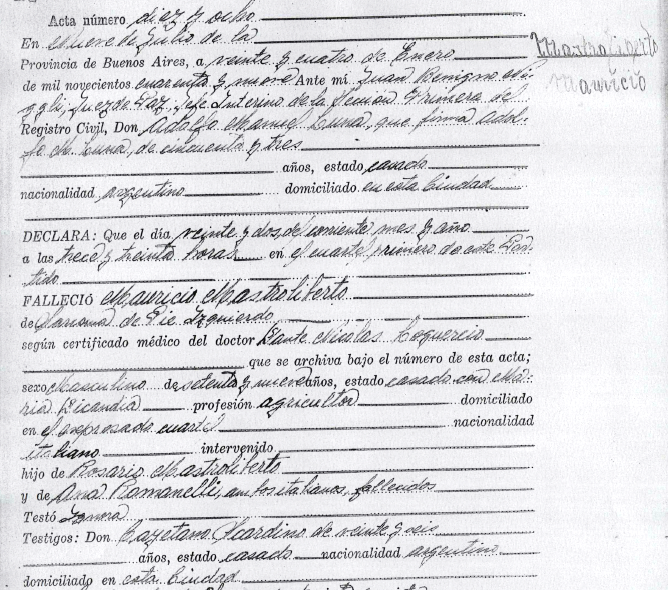 Acta número diez y ocho
En Nueve de Julio de la
Provincia de Buenos Aires, a veinte y cuatro de Enero
de mil novecientos cuarenta y nueve Ante mí Juan Benigno
Juez de Paz, Jefe Interino de la Sección Primera del
Registro Civil, Don Adolfo Manuel Luna, que firma Adol-
fo M. Luna, de cincuenta y tres
años, estado casado
nacionalidad argentino domiciliado en esta Ciudad
DECLARA: Que el día veinte y dos del corriente mes y año
a las trece y treinta horas en el cuartel primero de este Par-
tido
FALLECIÓ Mauricio Mastroliberto
de Sarcoma de Pie Izquierdo
según certificado médico del doctor Dante Nicolas
que se archiva bajo el número de esta acta;
sexo Masculino de setenta y nueve años, estado casado con Ma-
ria profesión agricultor domiciliado
en el expresado cuartel nacionalidad
italiano intervenido
hijo de Rosario Mastroliberto
y de Ana Romanelli, ambos italianos, fallecidos
Testó
Testigos: Don Cayetano Scardino de veinte y seis
años, estado casado nacionalidad argentino
domiciliado en esta Ciudad
Mastroliberto
Mauricio